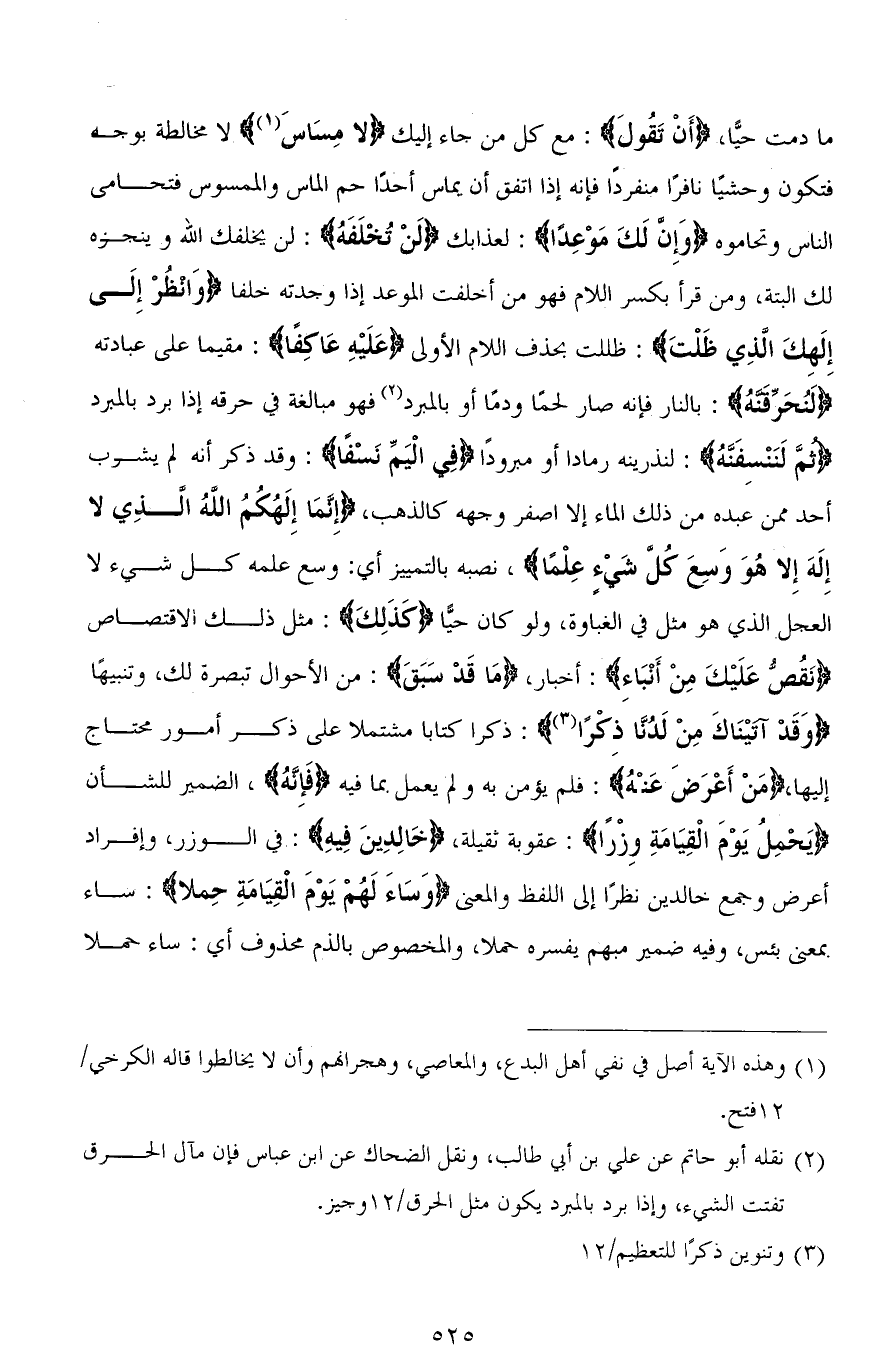 ما دمت حيًّا، ﴿أَنْ تَقُولَ﴾ : مع كل من جاء إليك ﴿لا مِسَاسَ(١)﴾ لا مخالطة بوجه
فتكون وحشيًا نافرًا منفردًا فإنه إذا اتفق أن يماس أحدًا حم الماس والممسوس فتحامى
الناس وتحاموه ﴿وَإِنَّ لَكَ مَوْعِدًا﴾ : لعذابك ﴿لَنْ تُخْلَفَهُ﴾ : لن يخلفك الله و ينجزه
لك البتة، ومن قرأ بكسر اللام فهو من أخلفت الموعد إذا وجدته خلفا ﴿وَانْظُرْ إِلَى
إِلَهِكَ الَّذِي ظَلْتَ﴾ : ظللت بحذف اللام الأولى ﴿عَلَيْهِ عَاكِفًا﴾ : مقيما على عبادته
﴿لَنُحَرِّقَنَّهُ﴾ : بالنار فإنه صار لحمًا ودمًا أو بالمبرد(٢) فهو مبالغة في حرقه إذا برد بالمبرد
﴿ثُمَّ لَنَنْسِفَنَّهُ﴾ : لنذرينه رمادا أو مبرودًا ﴿فِي الْيَمِّ نَسْفًا﴾ : وقد ذكر أنه لم يشوب
أحد ممن عبده من ذلك الماء إلا اصفر وجهه كالذهب، ﴿إِنَّمَا إِلَهُكُمُ اللَّهُ الَّذِي لا
إِلَهَ إِلا هُوَ وَسِعَ كُلَّ شَيْءٍ عِلْمًا﴾ ، نصبه بالتمييز أي: وسع علمه كل شيء لا
العجل الذي هو مثل في الغباوة، ولو كان حيًّا ﴿كَذَلِكَ﴾ : مثل ذلك الاقتصاص
﴿نَقُصُّ عَلَيْكَ مِنْ أَنْبَاءِ﴾ : أخبار، ﴿مَا قَدْ سَبَقَ﴾ : من الأحوال تبصرة لك، وتنبيهًا
﴿وَقَدْ آتَيْنَاكَ مِنْ لَدُنَّا ذِكْرًا(٣)﴾ : ذكرا كتابا مشتملا على ذكر أمور محتاج
إليها،﴿مَنْ أَعْرَضَ عَنْهُ﴾ : فلم يؤمن به و لم يعمل بما فيه ﴿فَإِنَّهُ﴾ ، الضمير للشأن
﴿يَحْمِلُ يَوْمَ الْقِيَامَةِ وِزْرًا﴾ : عقوبة ثقيلة، ﴿خَالِدِينَ فِيهِ﴾ : في الوزر، وإفراد
أعرض وجمع خالدين نظرًا إلى اللفظ والمعنى ﴿وَسَاءَ لَهُمْ يَوْمَ الْقِيَامَةِ حِملا﴾ : ساء
بمعنى بئس، وفيه ضمير مبهم يفسره حملا، والمخصوص بالذم محذوف أي : ساء حملا
(١) وهذه الآية أصل في نفي أهل البدع، والمعاصي، وهجرانهم وأن لا يخالطوا قاله الكرخي/
١٢فتح.
(٢) نقله أبو حاتم عن علي بن أبي طالب، ونقل الضحاك عن ابن عباس فإن مآل الحرق
تفتت الشيء، وإذا برد بالمبرد يكون مثل الحرق/١٢وجيز.
(٣) وتنوين ذكرًا للتعظيم/١٢
٥٢٥